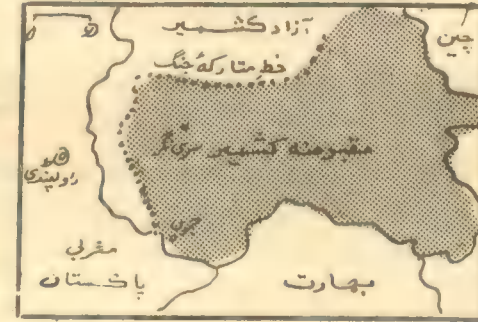 آزاد کشمیر
چین
خطِ متارکۂ جنگ
مقبوضہ کشمیر سری نگر
راولپنڈی
جموں
مغربی
پاکستان
بھارت